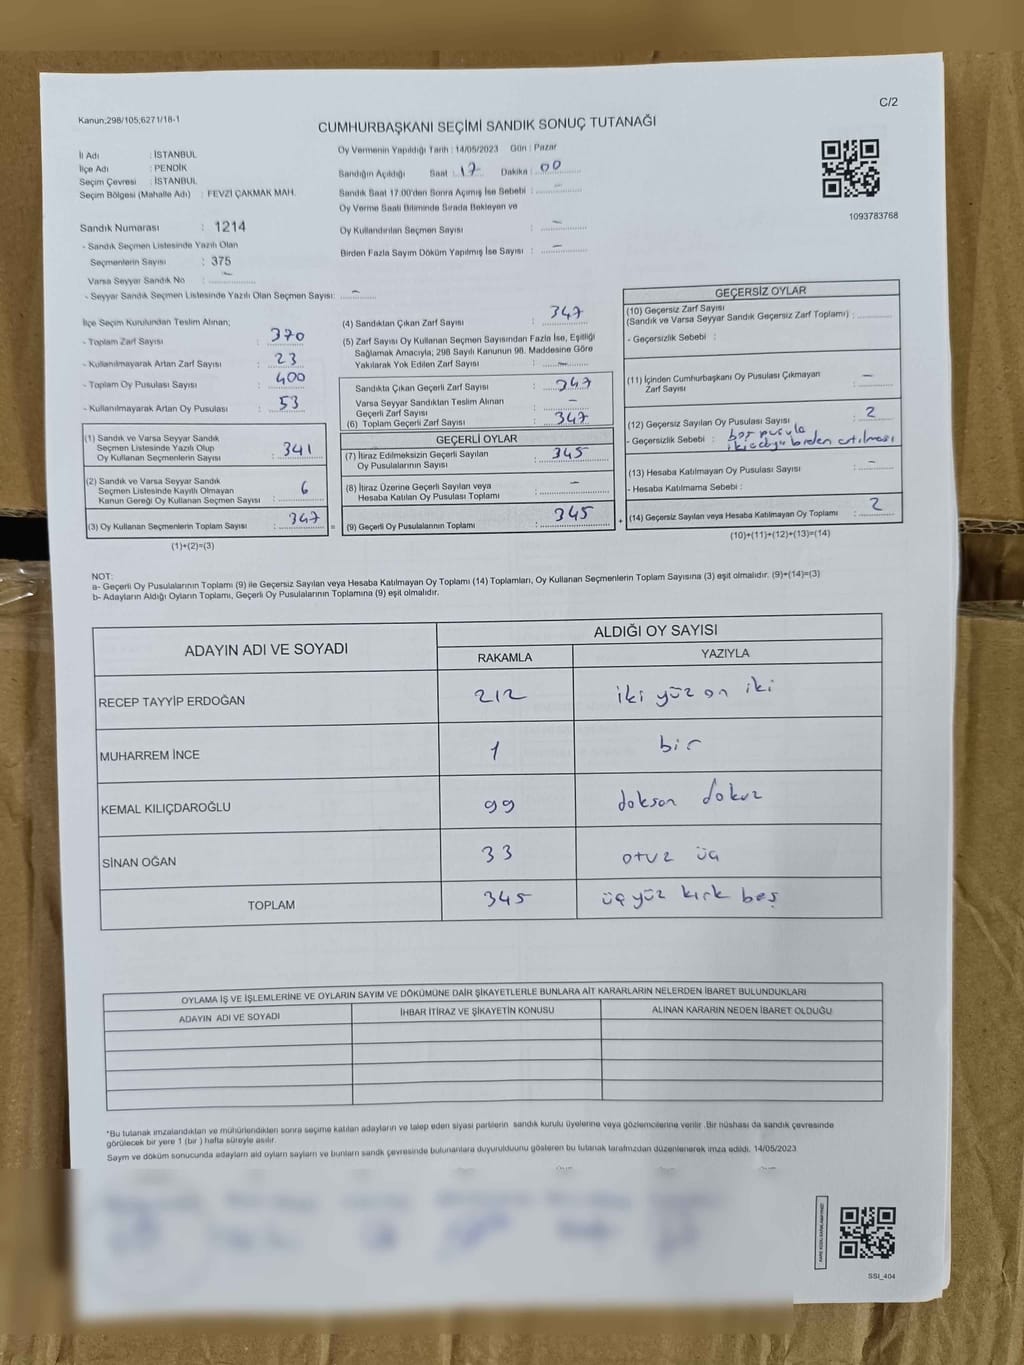 C/2
Kanun;298/105;6271/18-1
CUMHURBAŞKANI SEÇİMİ SANDIK SONUÇ TUTANAĞI
İl Adı : İSTANBUL
İlçe Adı : PENDİK
Seçim Çevresi : İSTANBUL
Seçim Bölgesi (Mahalle Adı) : FEVZİ ÇAKMAK MAH.
Sandık Numarası : 1214
- Sandık Seçmen Listesinde Yazılı Olan
Seçmenlerin Sayısı : 375
Varsa Seyyar Sandık No : –
- Seyyar Sandık Seçmen Listesinde Yazılı Olan Seçmen Sayısı: –
Oy Vermenin Yapıldığı Tarih : 14/05/2023 Gün : Pazar
Sandığın Açıldığı Saat : 17 Dakika : 00
Sandık Saat 17:00'den Sonra Açılmış İse Sebebi : –
Oy Verme Saati Bitiminde Sırada Bekleyen ve
Oy Kullandırılan Seçmen Sayısı : –
Birden Fazla Sayım Döküm Yapılmış İse Sayısı : –
1093783768
İlçe Seçim Kurulundan Teslim Alınan;
- Toplam Zarf Sayısı : 370
- Kullanılmayarak Artan Zarf Sayısı : 23
- Toplam Oy Pusulası Sayısı : 400
- Kullanılmayarak Artan Oy Pusulası : 53
(1) Sandık ve Varsa Seyyar Sandık
Seçmen Listesinde Yazılı Olup
Oy Kullanan Seçmenlerin Sayısı : 341
(2) Sandık ve Varsa Seyyar Sandık
Seçmen Listesinde Kayıtlı Olmayan
Kanun Gereği Oy Kullanan Seçmen Sayısı : 6
(3) Oy Kullanan Seçmenlerin Toplam Sayısı : 347
(1)+(2)=(3)
(4) Sandıktan Çıkan Zarf Sayısı : 347
(5) Zarf Sayısı Oy Kullanan Seçmen Sayısından Fazla İse, Eşitliği
Sağlamak Amacıyla; 298 Sayılı Kanunun 98. Maddesine Göre
Yakılarak Yok Edilen Zarf Sayısı : –
Sandıkta Çıkan Geçerli Zarf Sayısı : 347
Varsa Seyyar Sandıktan Teslim Alınan
Geçerli Zarf Sayısı : –
(6) Toplam Geçerli Zarf Sayısı : 347
GEÇERLİ OYLAR
(7) İtiraz Edilmeksizin Geçerli Sayılan
Oy Pusulalarının Sayısı : 345
(8) İtiraz Üzerine Geçerli Sayılan veya
Hesaba Katılan Oy Pusulası Toplamı : –
= (9) Geçerli Oy Pusulalarının Toplamı : 345 +
GEÇERSİZ OYLAR
(10) Geçersiz Zarf Sayısı
(Sandık ve Varsa Seyyar Sandık Geçersiz Zarf Toplamı) :
- Geçersizlik Sebebi :
(11) İçinden Cumhurbaşkanı Oy Pusulası Çıkmayan
Zarf Sayısı : –
(12) Geçersiz Sayılan Oy Pusulası Sayısı : 2
- Geçersizlik Sebebi : boş pusula
birden
(13) Hesaba Katılmayan Oy Pusulası Sayısı : –
- Hesaba Katılmama Sebebi :
(14) Geçersiz Sayılan veya Hesaba Katılmayan Oy Toplamı : 2
(10)+(11)+(12)+(13)=(14)
NOT:
a- Geçerli Oy Pusulalarının Toplamı (9) ile Geçersiz Sayılan veya Hesaba Katılmayan Oy Toplamı (14) Toplamları, Oy Kullanan Seçmenlerin Toplam Sayısına (3) eşit olmalıdır. (9)+(14)=(3)
b- Adayların Aldığı Oyların Toplamı, Geçerli Oy Pusulalarının Toplamına (9) eşit olmalıdır.
ADAYIN ADI VE SOYADI
ALDIĞI OY SAYISI
RAKAMLA YAZIYLA
RECEP TAYYİP ERDOĞAN 212 iki yüz on iki
MUHARREM İNCE 1 bir
KEMAL KILIÇDAROĞLU 99 doksan dokuz
SİNAN OĞAN 33 otuz üç
TOPLAM 345 üç yüz kırk beş
OYLAMA İŞ VE İŞLEMLERİNE VE OYLARIN SAYIM VE DÖKÜMÜNE DAİR ŞİKAYETLERLE BUNLARA AİT KARARLARIN NELERDEN İBARET BULUNDUKLARI
ADAYIN ADI VE SOYADI İHBAR İTİRAZ VE ŞİKAYETİN KONUSU ALINAN KARARIN NEDEN İBARET OLDUĞU
*Bu tutanak imzalandıktan ve mühürlendikten sonra seçime katılan adayların ve talep eden siyasi partilerin sandık kurulu üyelerine veya gözlemcilerine verilir. Bir nüshası da sandık çevresinde
görülecek bir yere 1 (bir ) hafta süreyle asılır.
Sayım ve döküm sonucunda adayların ald oyların sayıların ve bunların sandk çevresinde bulunanlara duyurulduunu gösteren bu tutanak tarafmzdan düzenlenerek imza edildi. 14/05/2023
SSI_404